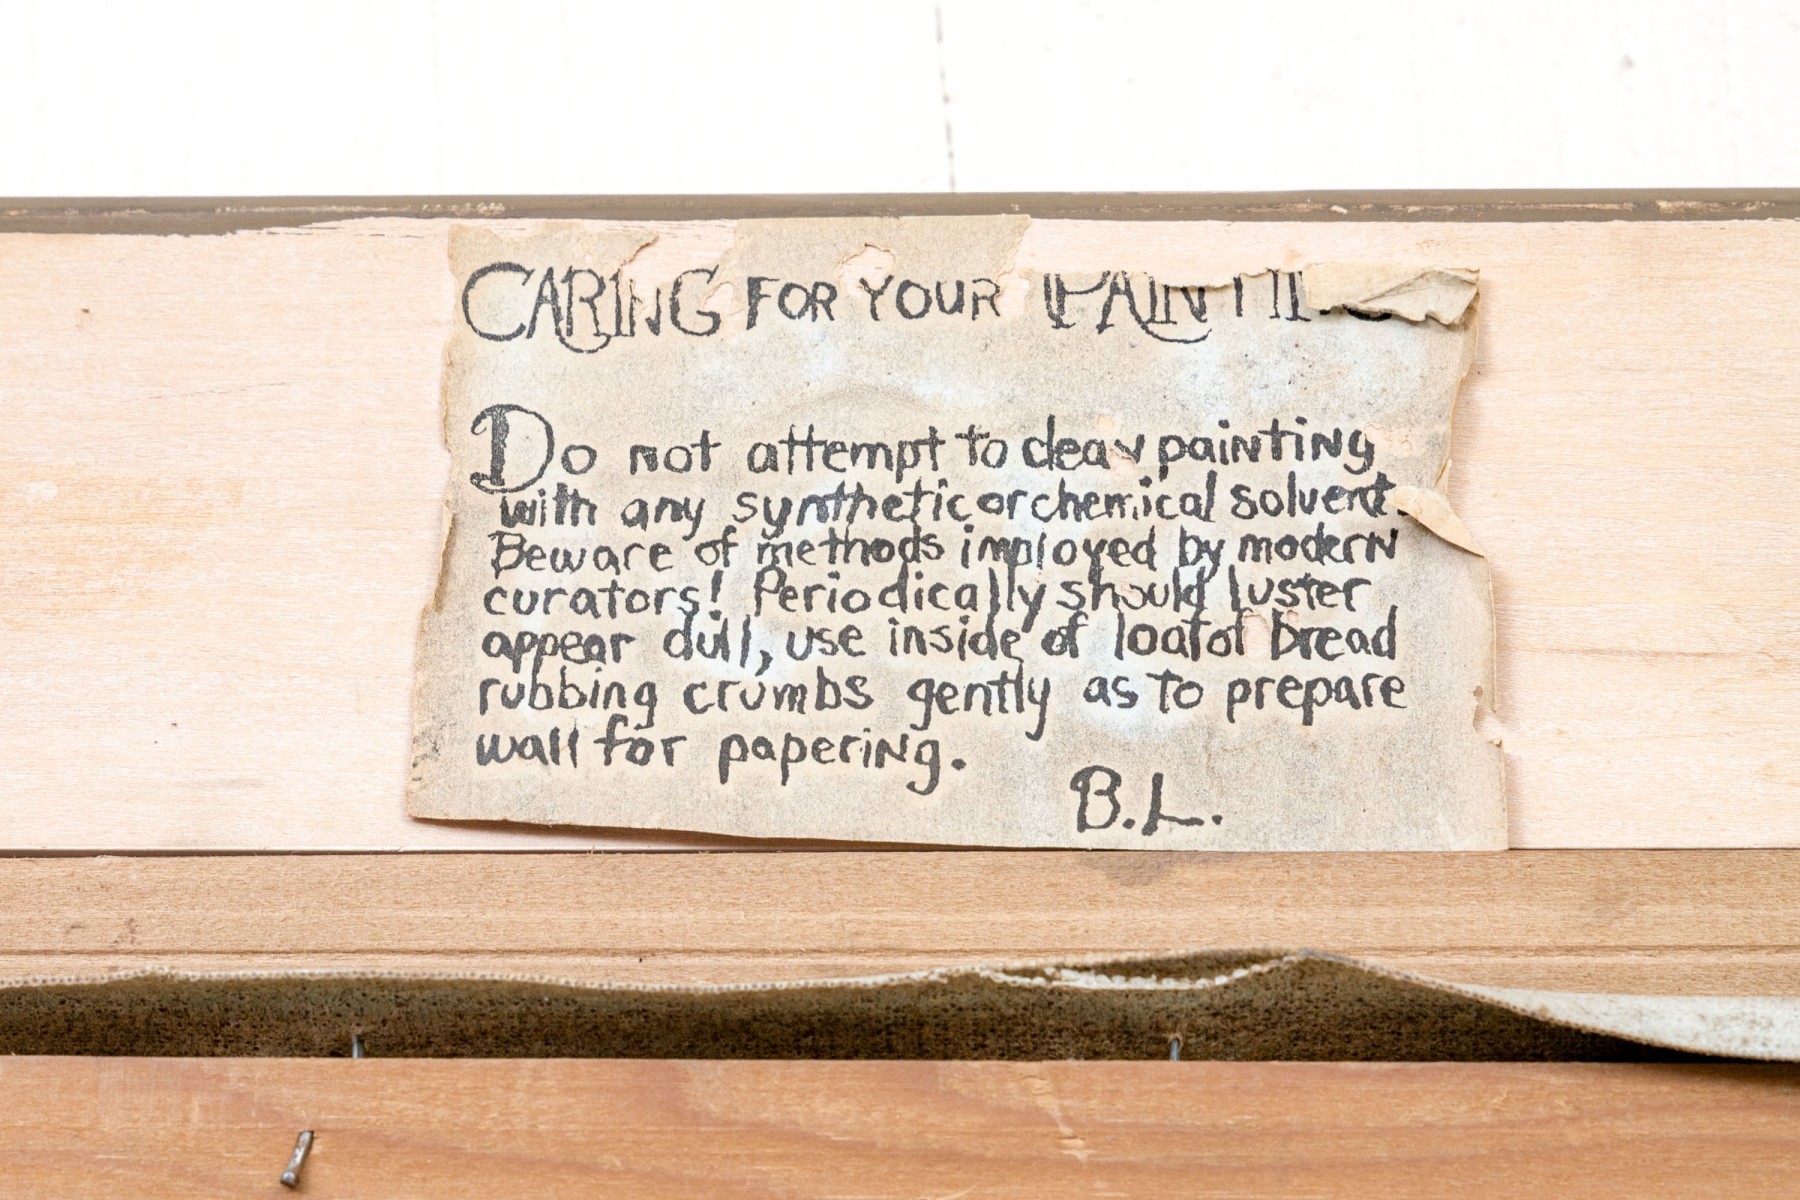 CARING FOR YOUR PAINTING
Do not attempt to clean painting
with any synthetic or chemical solvent.
Beware of methods imployed by modern
curators! Periodically should luster
appear dull, use inside of loaf of bread
rubbing crumbs gently as to prepare
wall for papering.
B.L.